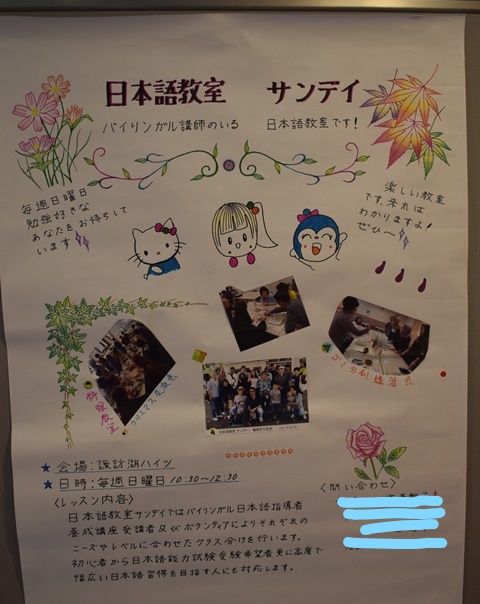 日本語教室 サンデイ
バイリンガル講師のいる 日本語教室です!
毎週日曜日
勉強好きな
あなたをお待ちして
います
楽しい教室
です。来れば
わかりますよ!
ぜひ〜
料理教室
クリスマス交流会
ゴミ分別講習会
★会場:諏訪湖ハイツ
★日時:毎週日曜日10:30~12:30
〈レッスン内容〉
日本語教室サンデイではバイリンガル日本語指導者
養成講座受講者及びボランティアによりそれぞれの
ニーズやレベルに合わせたクラス分けを行います。
初心者から日本語能力試験受験希望者更に高度で
幅広い日本語習得を目指す人にも対応します。
〈問い合わせ〉